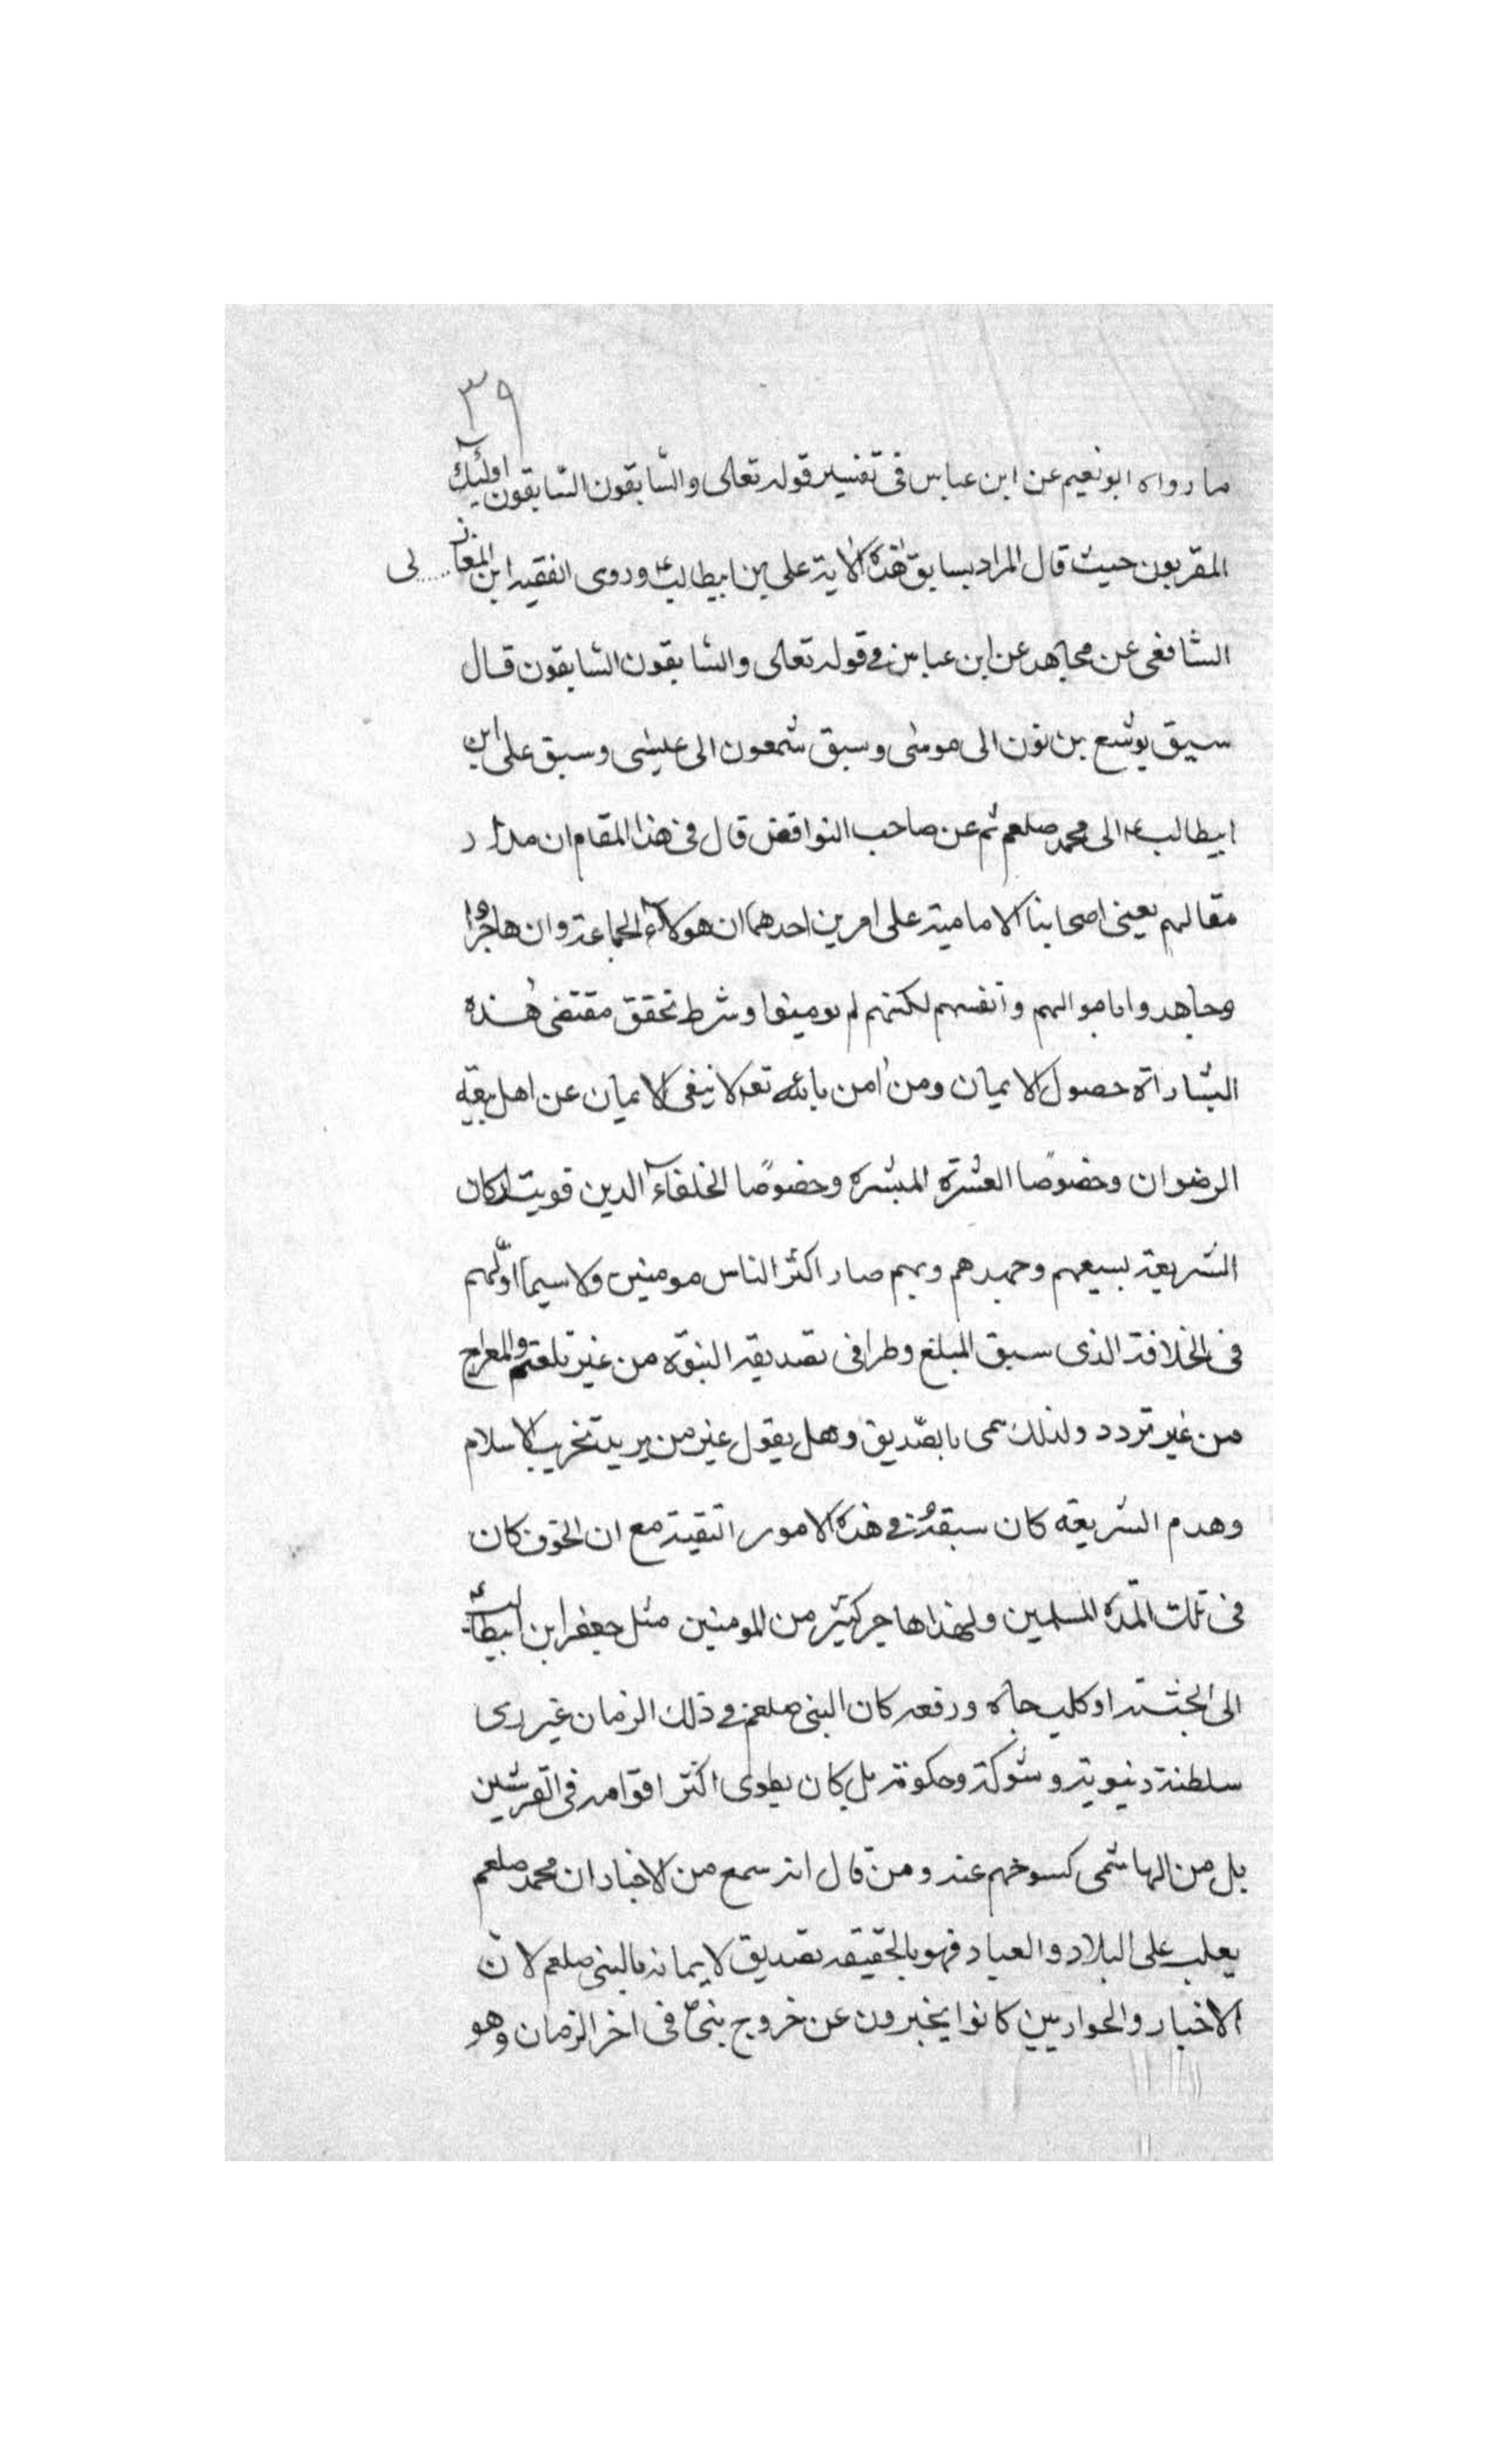 ٣٩
ما رواه ابو نعيم عن ابن عباس فى تفسير قوله تعالى والسّابقون السّابقون اولئك
المقربون حيث قال المراد بسابق هذه الاية على بن ابيطالب ع وروى الفقيه ابن المغاز لى
الشافعى عن مجاهد عن ابن عباس فى قوله تعالى والسّابقون السّابقون قال
سبق يوشع بن نون الى موسى وسبق شمعون الى عيسى وسبق على ابن
ابيطالب ع الى محمد صلعم ثم عن صاحب النواقض قال فى هذا المقام ان مدار
مقالهم يعنى اصحابنا الامامية على امرين احدهما ان هولاء الجماعة وان هاجروا
وجاهدوا باموالهم وانفسهم لكنهم لم يومنوا وشرط تحقق مقتضى هذه
البشاراة حصول الايمان ومن امن بالله تعه لا ينفى الايمان عن اهل بيعة
الرضوان وخصوصًا العشرة المبشره وخصوصًا الخلفاء الذين قويت اركان
الشريعة بسيعهم وجهدهم وبهم صار اكثر الناس مومنين ولا سيما اوّلهم
فى الخلافة الذى سبق المبلغ وطرا فى تصديقه النبوّة من غير تلعثم والمعراج
من غير تردد ولذلك سمى بالصّديق وهل يقول غير من يريد تخريب الاسلام
وهدم الشريعة كان سبقه فى هذه الامور التقية مع ان الخوف كان
فى تلك المدّه المسلمين ولهذا هاجر كثير من المومنين مثل جعفر ابن ابيطالب ع
الى الحبشة او كلب جاه ورفعه كان النبى صلعم فى ذلك الزمان غير ذى
سلطنة دنيوية وشوكة وحكومة بل كان يطوى اكثر اقوامه فى القرشين
بل من الهاشمى عنه ومن قال انه سمع من الاخبار ان محمد صلعم
يغلب على البلاد والعباد فهو بالحقيقه تصديق لايمانه بالنبى صلعم لانّ
الاخبار والحواريين كانوا يخبرون عن خروج بنىّ فى اخر الزمان وهو